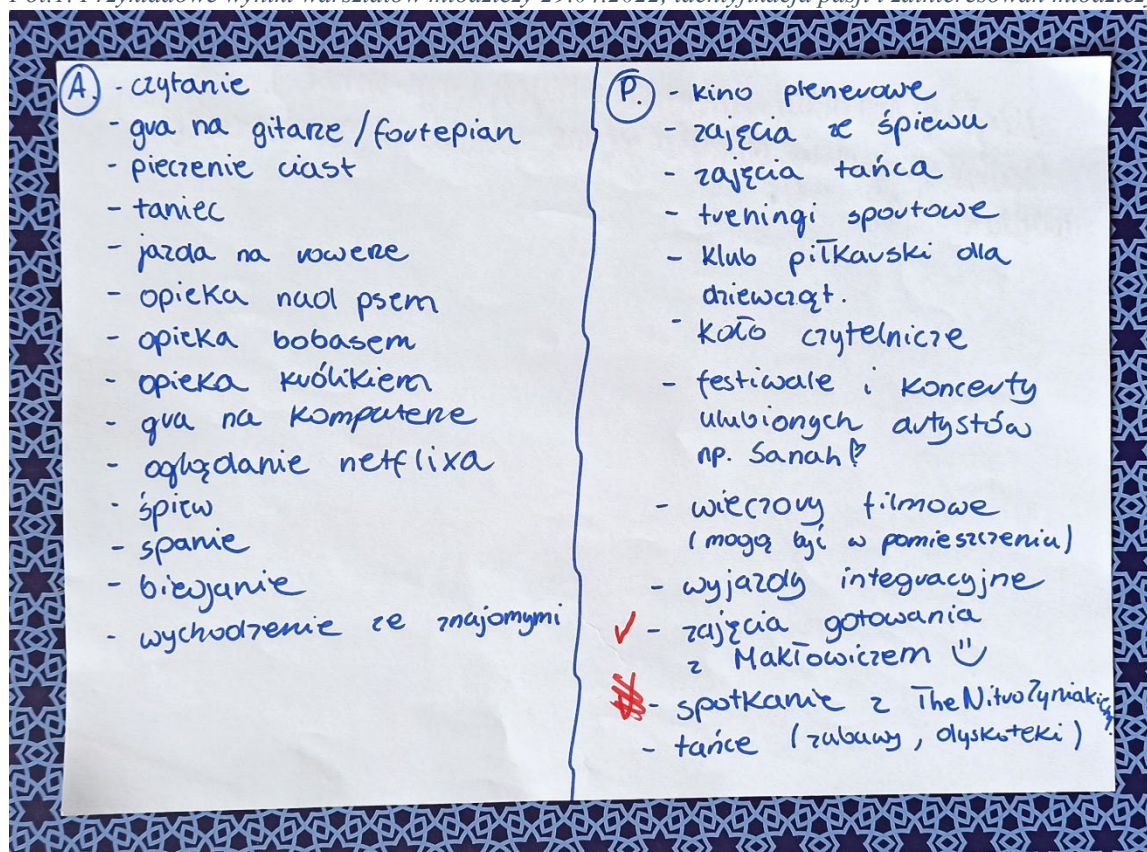 Fot.1. Przykładowe wyniki warsztatów młodzieży 29.04.2022, identyfikacja pasji i zainteresowań młodzieży
A.
- czytanie
- gra na gitarze / fortepian
- pieczenie ciast
- taniec
- jazda na rowerze
- opieka nad psem
- opieka bobasem
- opieka królikiem
- gra na komputerze
- oglądanie netflixa
- śpiew
- spanie
- bieganie
- wychodzenie ze znajomymi
P.
- kino plenerowe
- zajęcia ze śpiewu
- zajęcia tańca
- treningi sportowe
- klub piłkarski dla
dziewcząt.
- koło czytelnicze
- festiwale i koncerty
ulubionych artystów
np. Sanah
- wieczory filmowe
(mogą być w pomieszczeniu)
- wyjazdy integracyjne
- zajęcia gotowania
z Makłowiczem
- spotkanie z TheNitroZyniakiem.
- tańce (zabawy, dyskoteki)